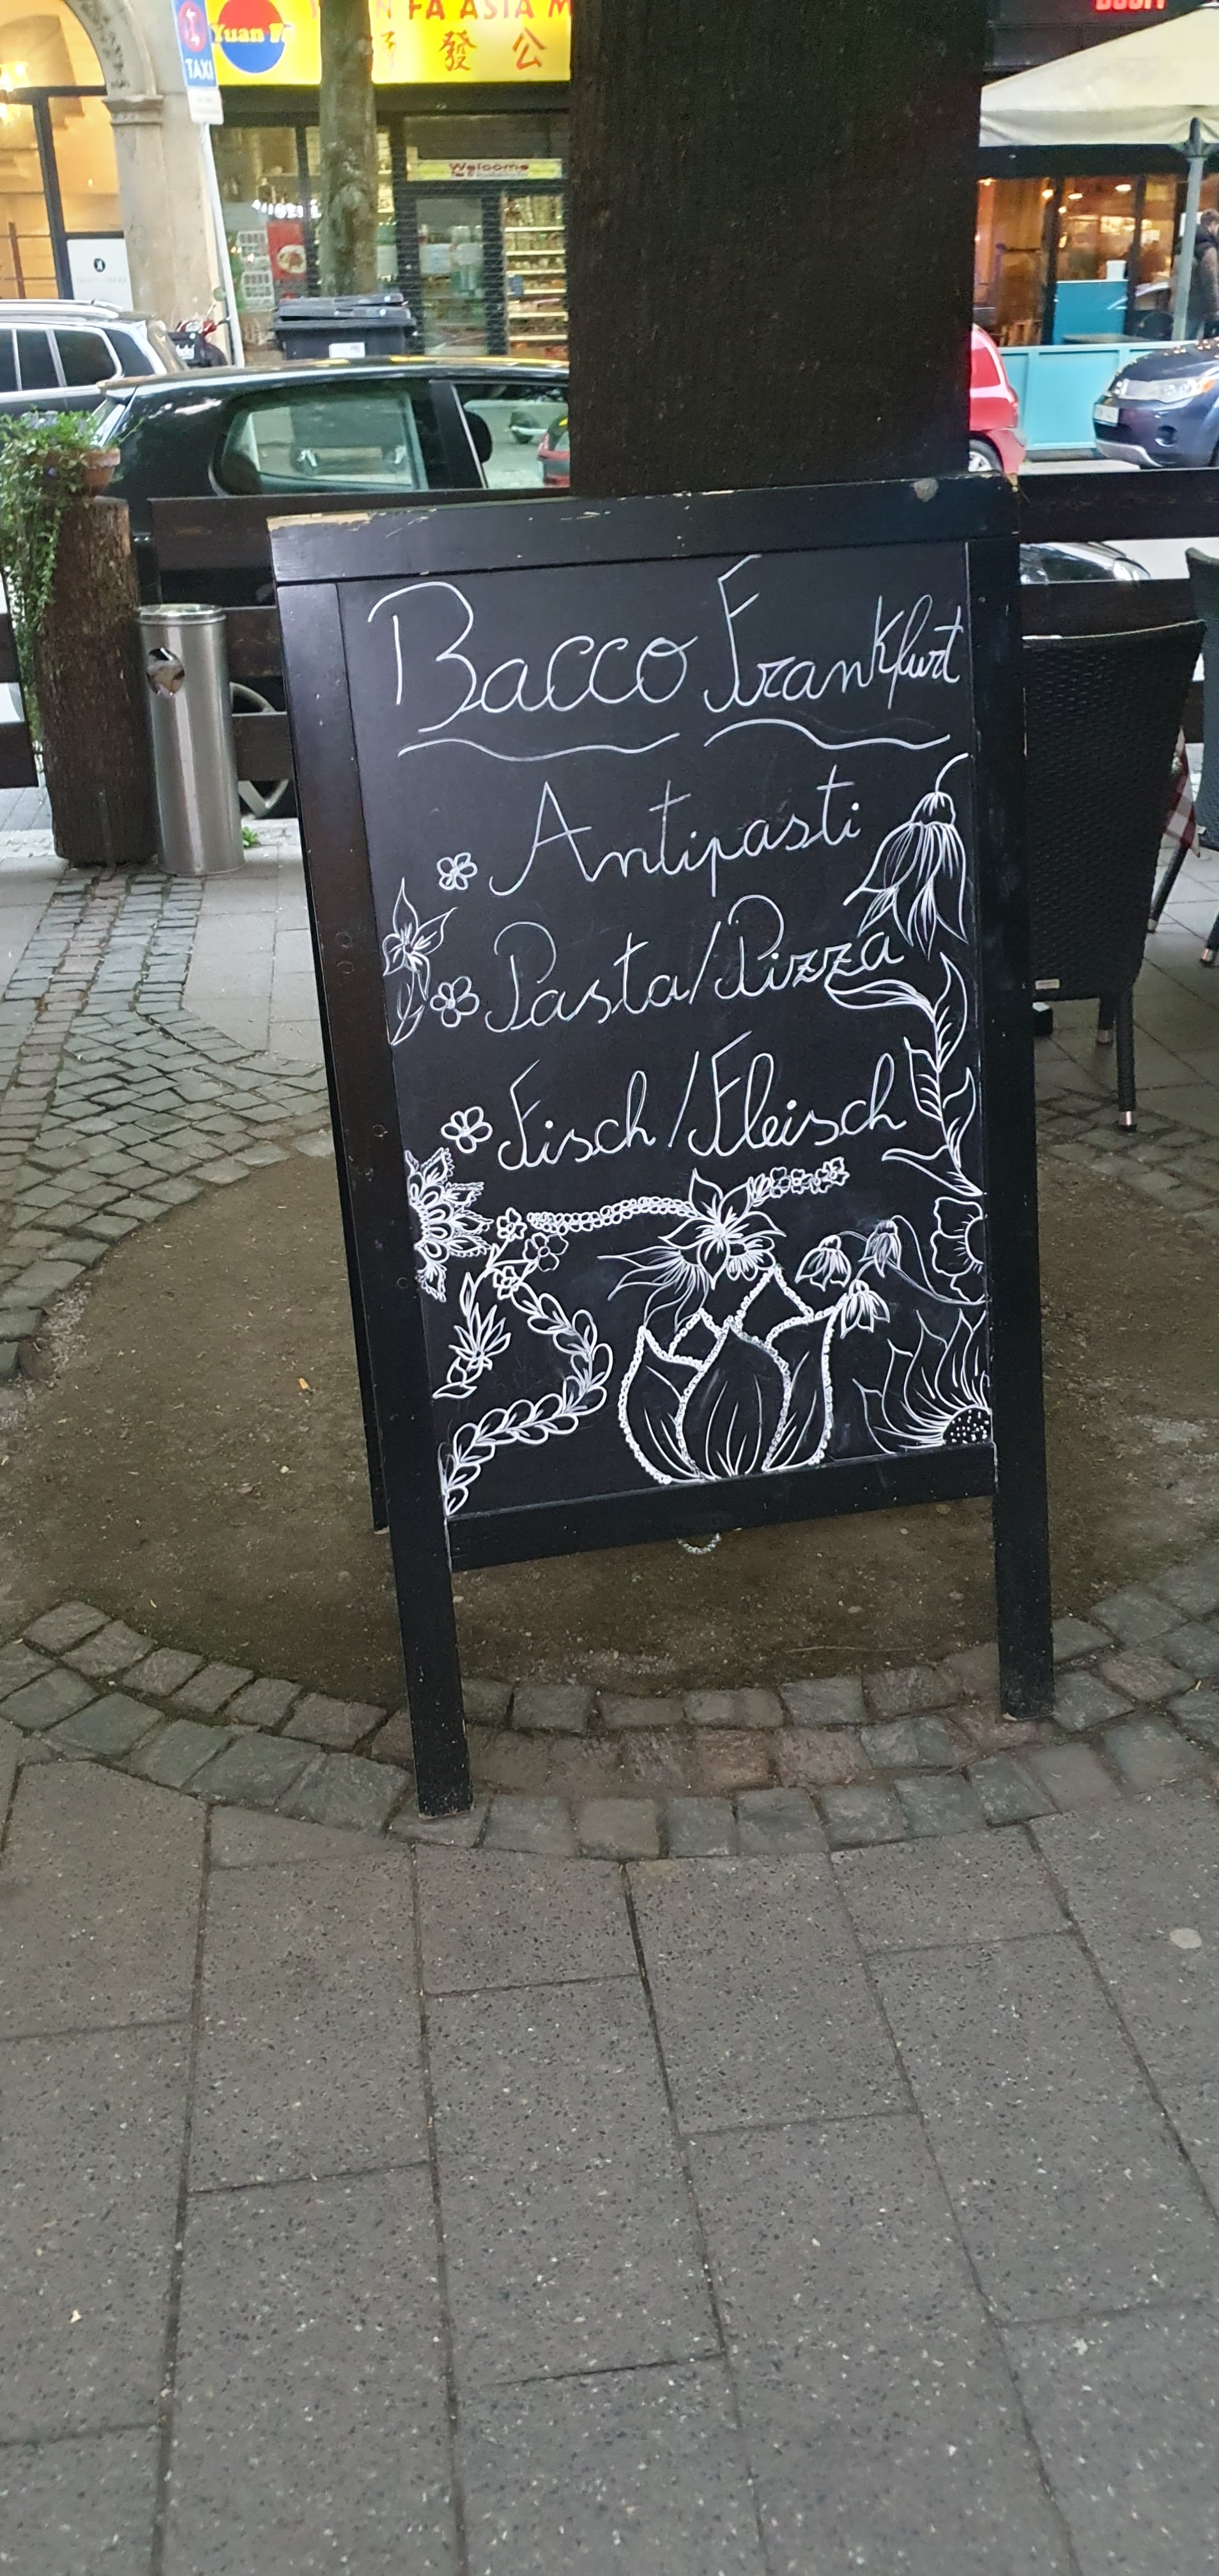 TAXI
Yuan F
N FA ASIA M
發 公
Welcome
Bacco Frankfurt
Antipasti
Pasta/Pizza
Fisch/Fleisch